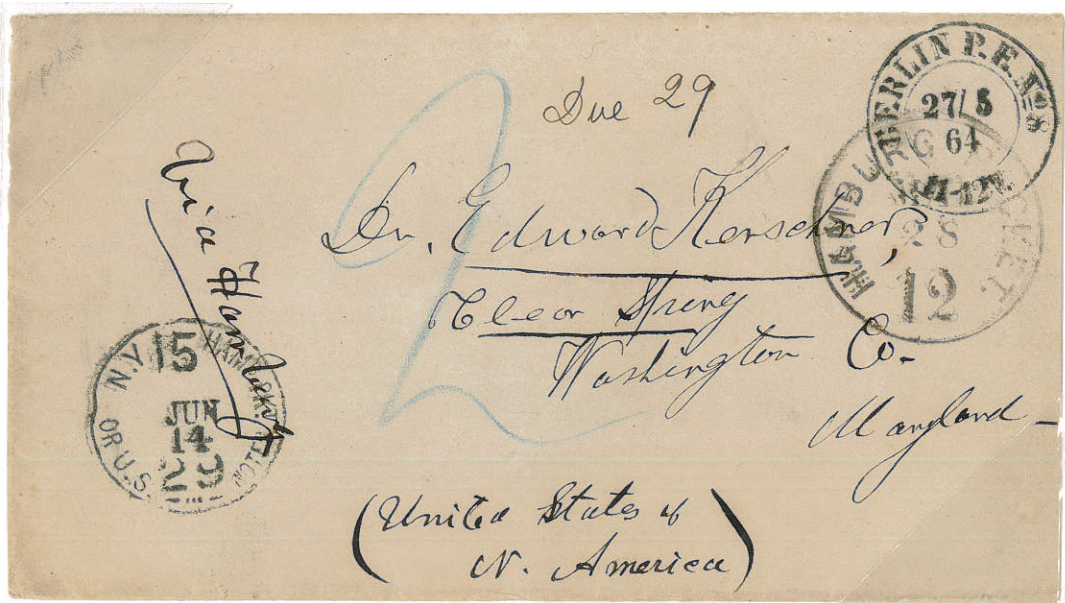 BERLIN P. E. No 8
27/5
64
11-12V.
Due 29
HAMBURG PACKET.
28
12
Via Hamburg
Dr. Edward Kerschner,
Clear Spring
Washington Co.
Maryland
N.Y. HAM. PKT.
15
JUN
14
29
OR U.S. NOTES
2
(United States of
N. America)